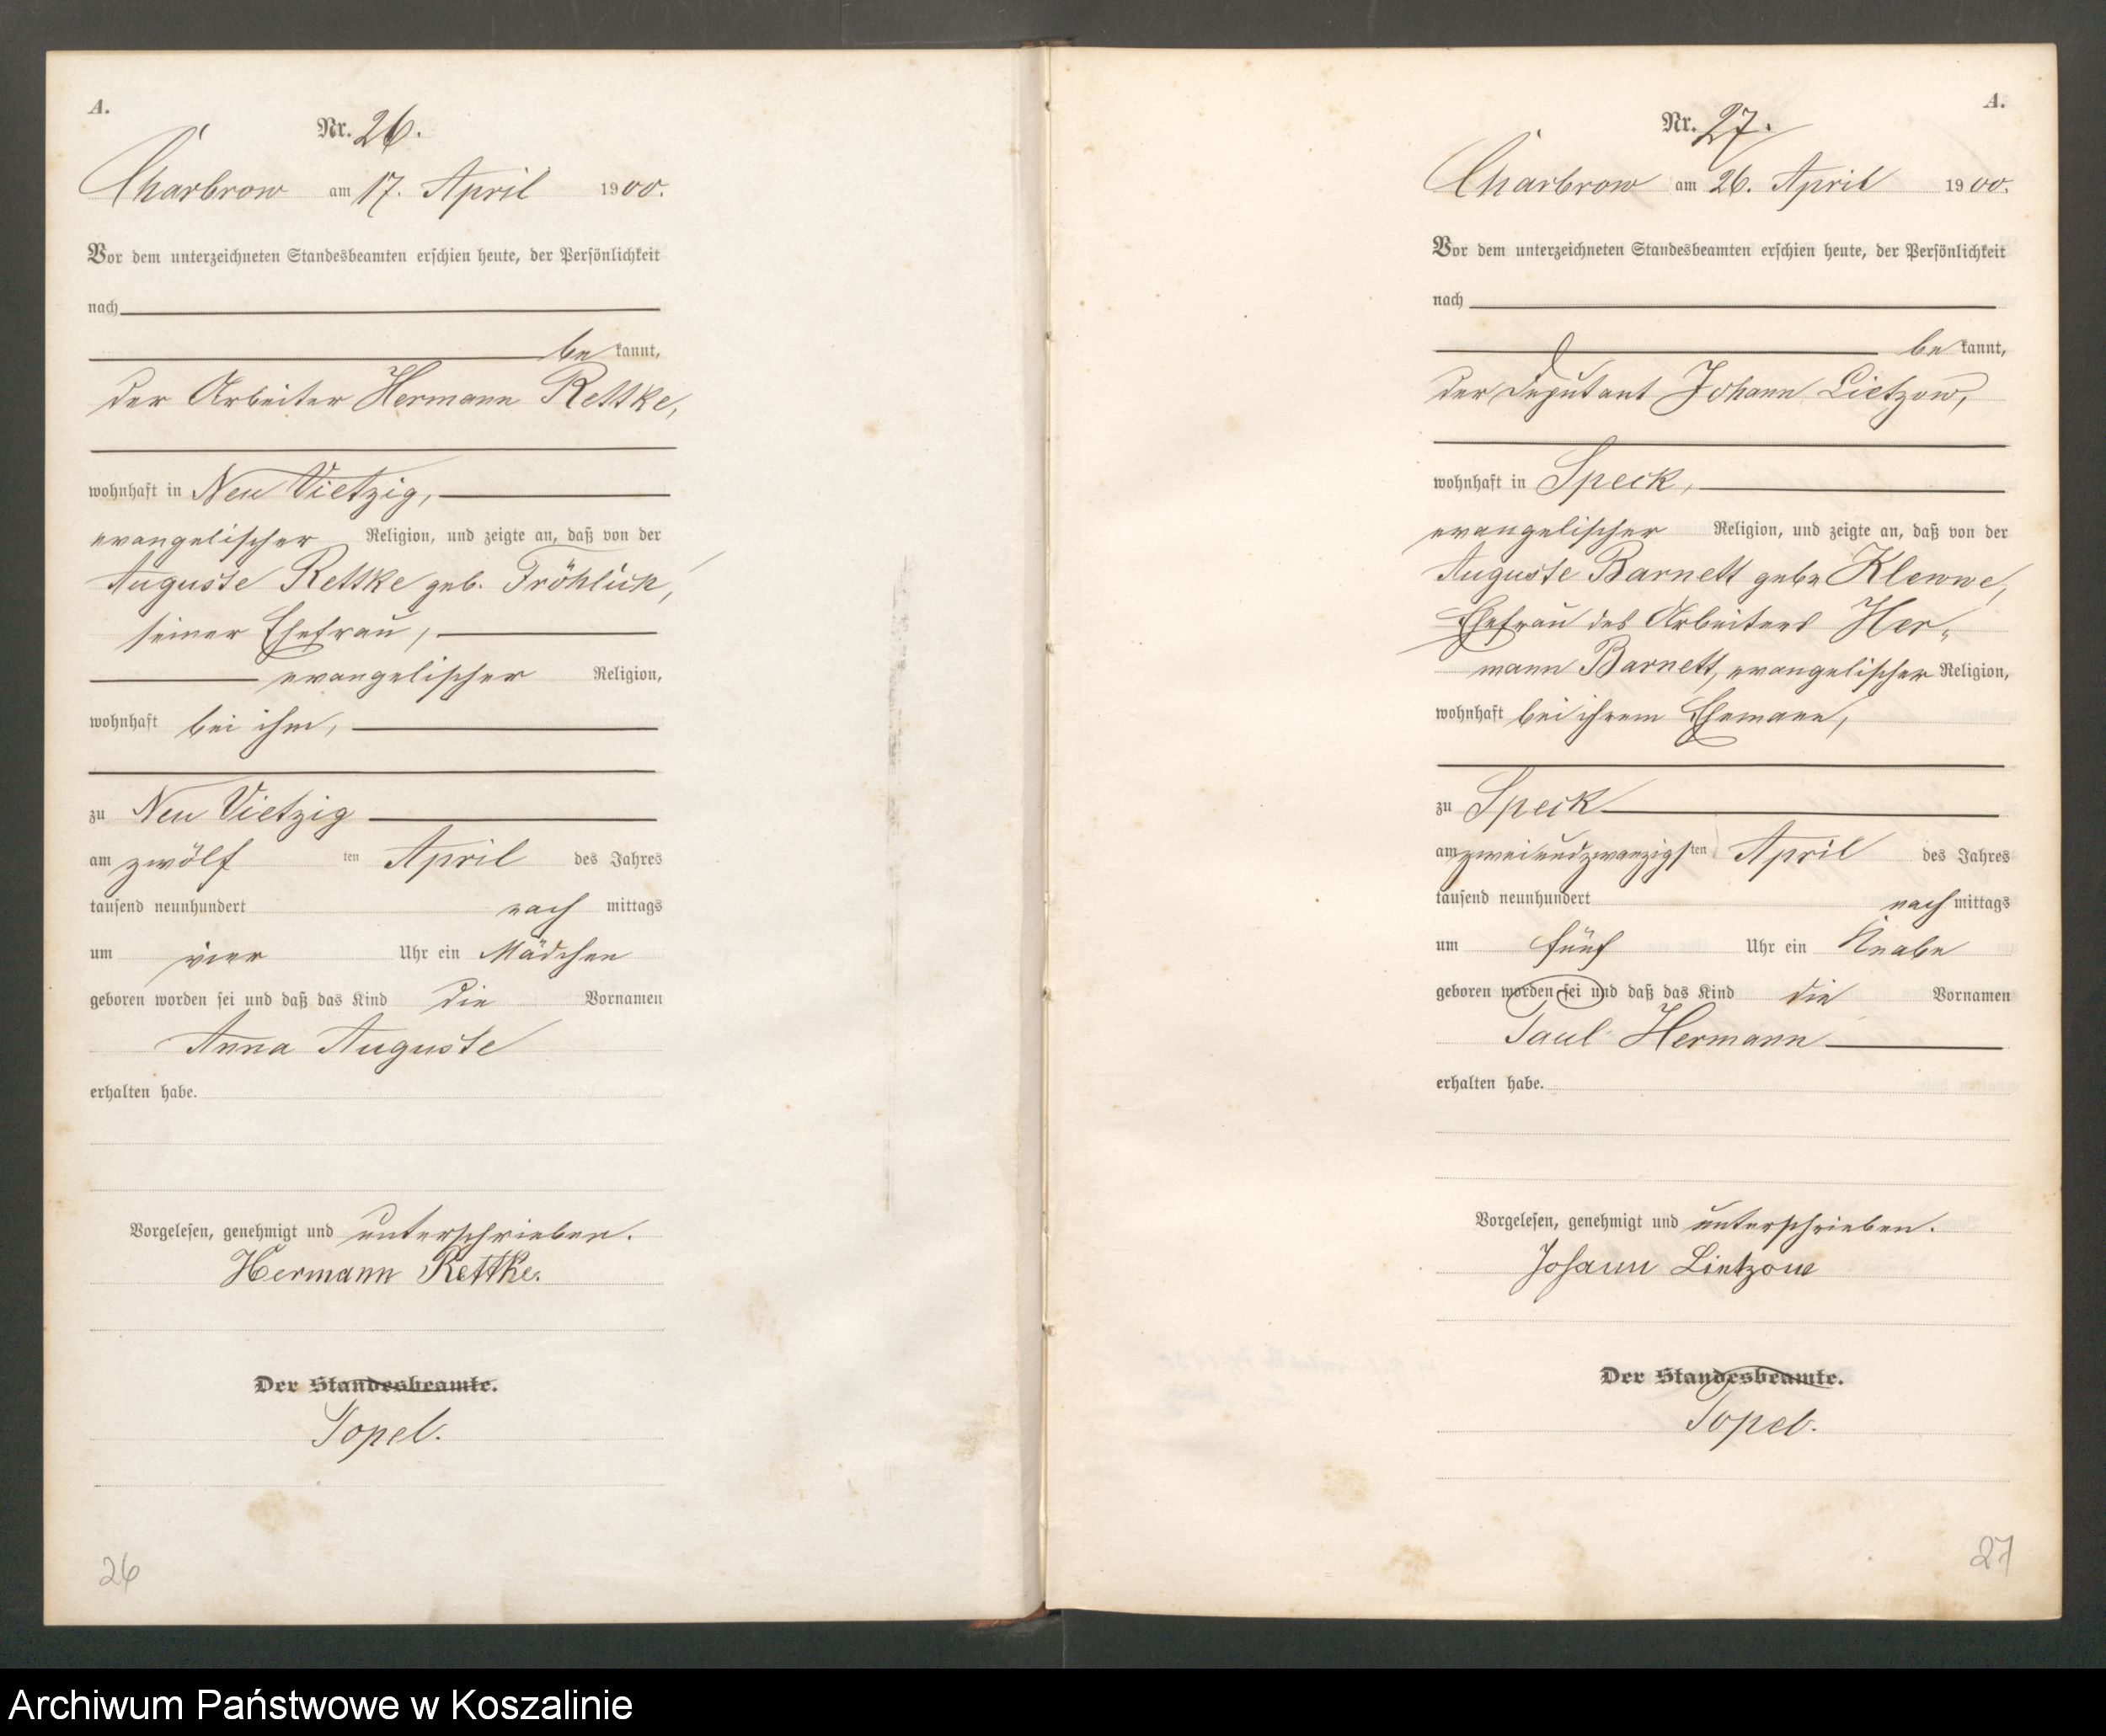 A.
Nr. 26.
Charbrow am 17. April 1900.
Vor dem unterzeichneten Standesbeamten erschien heute, der Persönlichkeit
nach
be kannt,
der Arbeiter Hermann Rettke,
wohnhaft in Neu Vietzig,
evangelischer Religion, und zeigte an, daß von der
Auguste Rettke geb. Fröhlich,
seiner Ehefrau,
evangelischer Religion,
wohnhaft bei ihm,
zu Neu Vietzig
am zwölf ten April des Jahres
tausend neunhundert nach mittags
um vier Uhr ein Mädchen
geboren worden sei und daß das Kind die Vornamen
Anna Auguste
erhalten habe.
Vorgelesen, genehmigt und unterschrieben.
Hermann Rettke.
Der Standesbeamte.
Topel.
26
A.
Nr. 27.
Charbrow am 26. April 1900.
Vor dem unterzeichneten Standesbeamten erschien heute, der Persönlichkeit
nach
be kannt,
der Deputant Johann Lietzow,
wohnhaft in Speck,
evangelischer Religion, und zeigte an, daß von der
Auguste Barnett geb. Klewwe,
Ehefrau des Arbeiters Her-
mann Barnett, evangelischer Religion,
wohnhaft bei ihrem Ehemann,
zu Speck
am zweiundzwanzigsten April des Jahres
tausend neunhundert nach mittags
um fünf Uhr ein Knabe
geboren worden sei und daß das Kind die Vornamen
Paul Hermann
erhalten habe.
Vorgelesen, genehmigt und unterschrieben.
Johann Lietzow
Der Standesbeamte.
Topel.
27
Archiwum Państwowe w Koszalinie